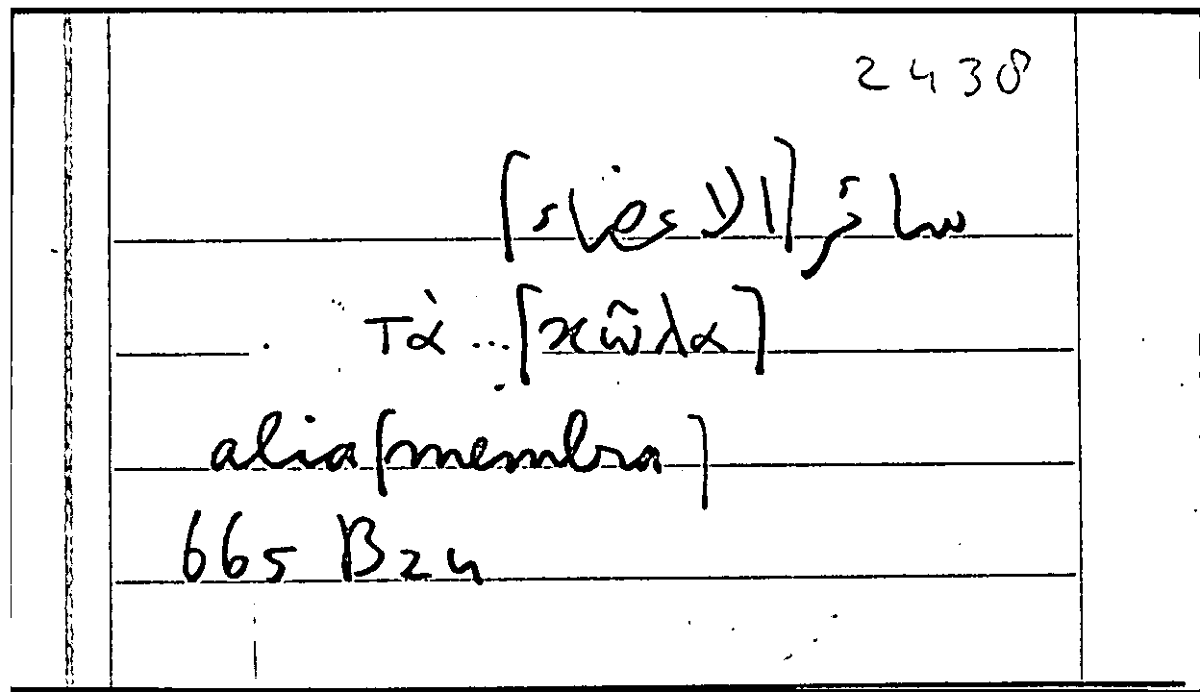 2438
سائر [الاعضاء]
τὰ ... [κῶλα]
alia [membra]
665 B 24